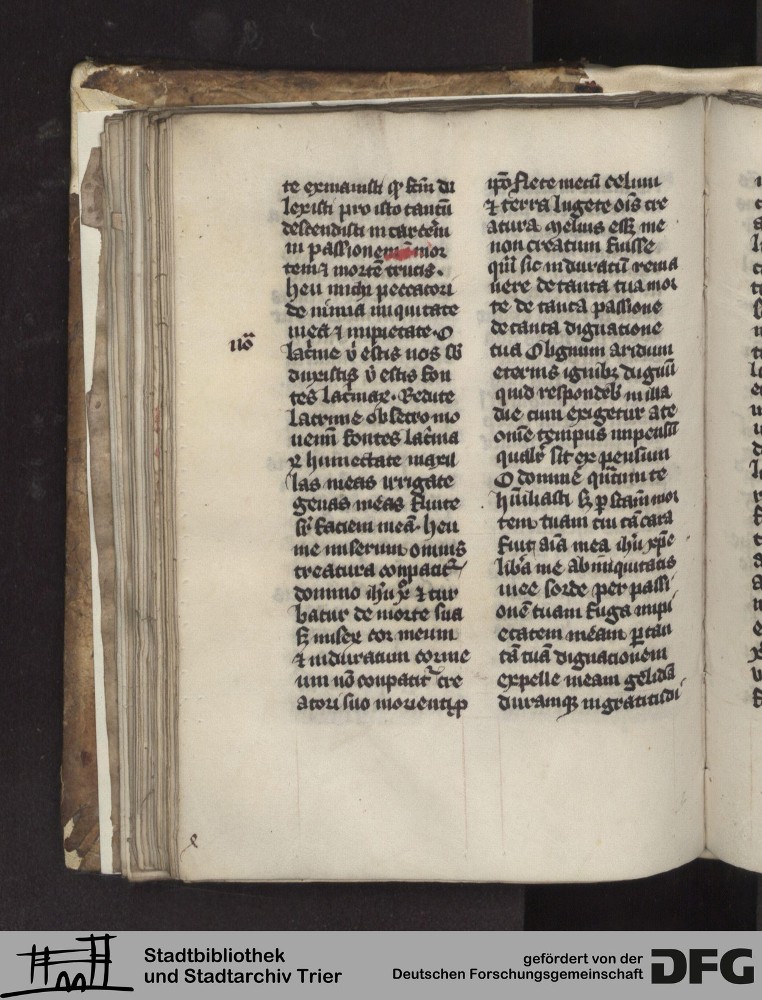 te exinanisti
lexisti pro isto tantū
descendisti in carcerē
in passionem mor
tem ⁊ mortē crucis.
heu michi peccatori
de nimia iniquitate
mea ⁊ impietate. O
lac̄me v̄ estis nos
duxistis v̄ estis fon
tes lac̄maꝝ. Redite
lacrime obsecro mo
ueni fontes lac̄ma
ꝝ humectate maxil
las meas irrigate
genas meas fluite
faciem meā. heu
me miserum omnis
creatura conpatit᷑
domino ih̄u ⁊ tur
batur de morte sua
miser cor meum
⁊ induratum cor me
um nō conpatit᷑ cre
atori suo morienti ꝓ
nō
ip̄o flete mecū celum
⁊ terra lugete oīs cre
atura melius esset me
non creatum fuisse
sic induratū rema
nere de tanta tua mor
te de tanta passione
de tanta dignatione
tua O lignum aridum
eternis ignibꝫ dignū
quid respondebis in illa
die cum exigetur a te
om̄e tempus inpensū
sit expensum
O domine te
humiliasti mor
tem tuam cui tā cara
fuit aīa mea ih̄u xp̄e
lib̄a me ab iniquitatis
mee sorde per passi
onē tuam fuga inpi
etatem meam ꝑ tan
tā tuā dignationem
expelle meam gelidā
duramqꝫ ingratitudi
Stadtbibliothek
und Stadtarchiv Trier
gefördert von der
Deutschen Forschungsgemeinschaft
DFG